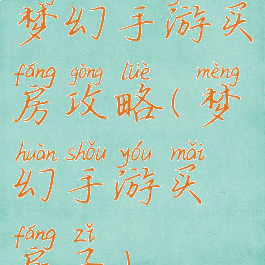 梦幻手游买
fáng gōng lüè mèng
房攻略(梦
huàn shǒu yóu mǎi
幻手游买
fáng zǐ
房子)